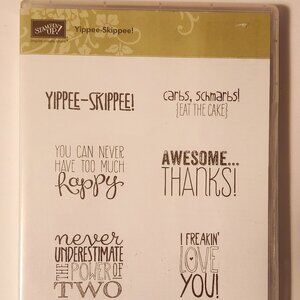 STAMPIN' UP!
Yippee-Skippee!
YIPPEE-SKIPPEE!
carbs, schmarbs!
{EAT THE CAKE}
YOU CAN NEVER
HAVE TOO MUCH
happy
AWESOME...
THANKS!
never
UNDERESTIMATE
THE POWER OF
TWO
I FREAKIN'
LOVE
YOU!